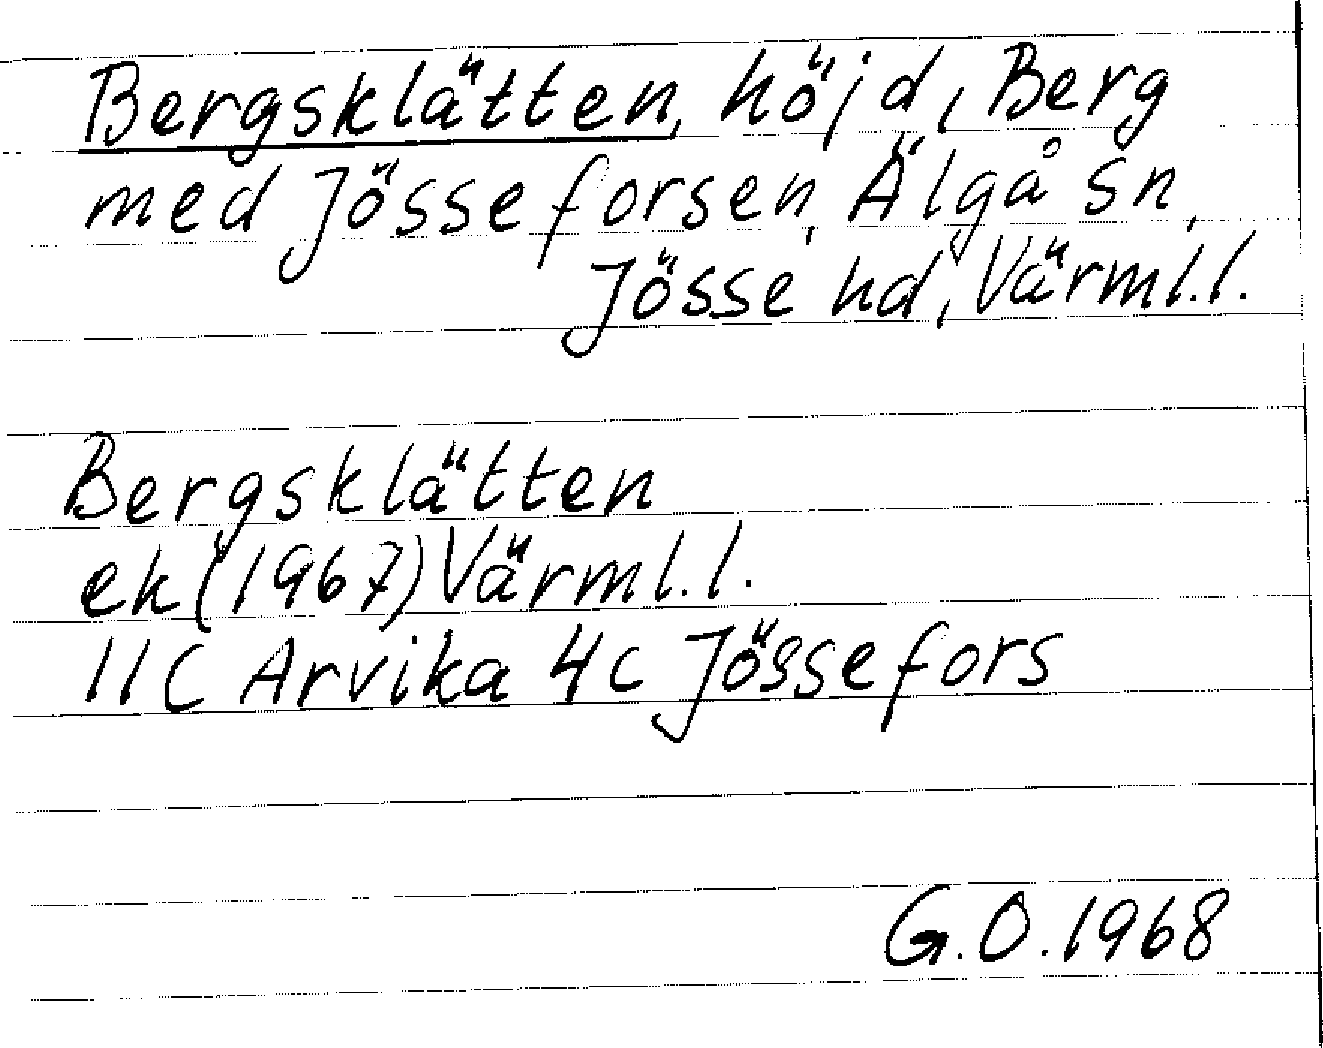 Bergsklätten, höjd, Berg
med Jösseforsen, Älgå sn,
Jösse hd, Värml.l.
Bergsklätten
ek (1967) Värml.l.
11C Arvika 4c Jössefors
G.O. 1968